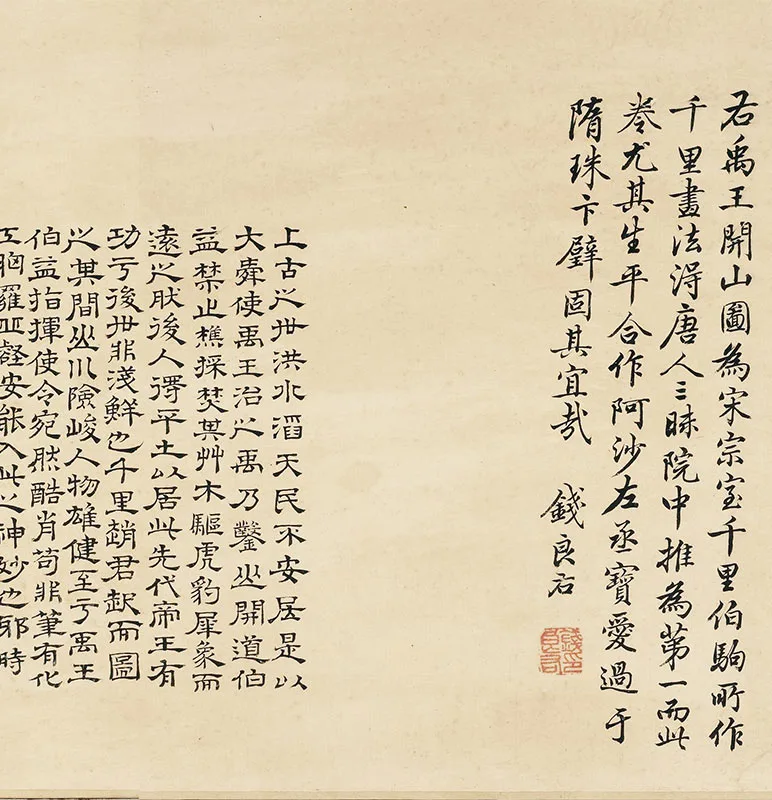 右禹王開山圖為宋宗室千里伯駒所作
千里畫法得唐人三昧院中推為第一而此
卷尤其生平合作阿沙左丞寶愛過于
隋珠卞璧固其宜哉
錢良右
錢良右印
上古之世洪水滔天民不安居是以
大舜使禹王治之禹乃鑿山開道伯
益禁止樵採焚其艸木驅虎豹犀象而
遠之肰後人得平土以居此先代帝王有
功于後世非淺鮮也千里趙君起而圖
之其間山川險峻人物雄健至于禹王
伯益指揮使令宛然酷肖苟非筆有化
工胸羅丘壑安能入此之神妙也耶時